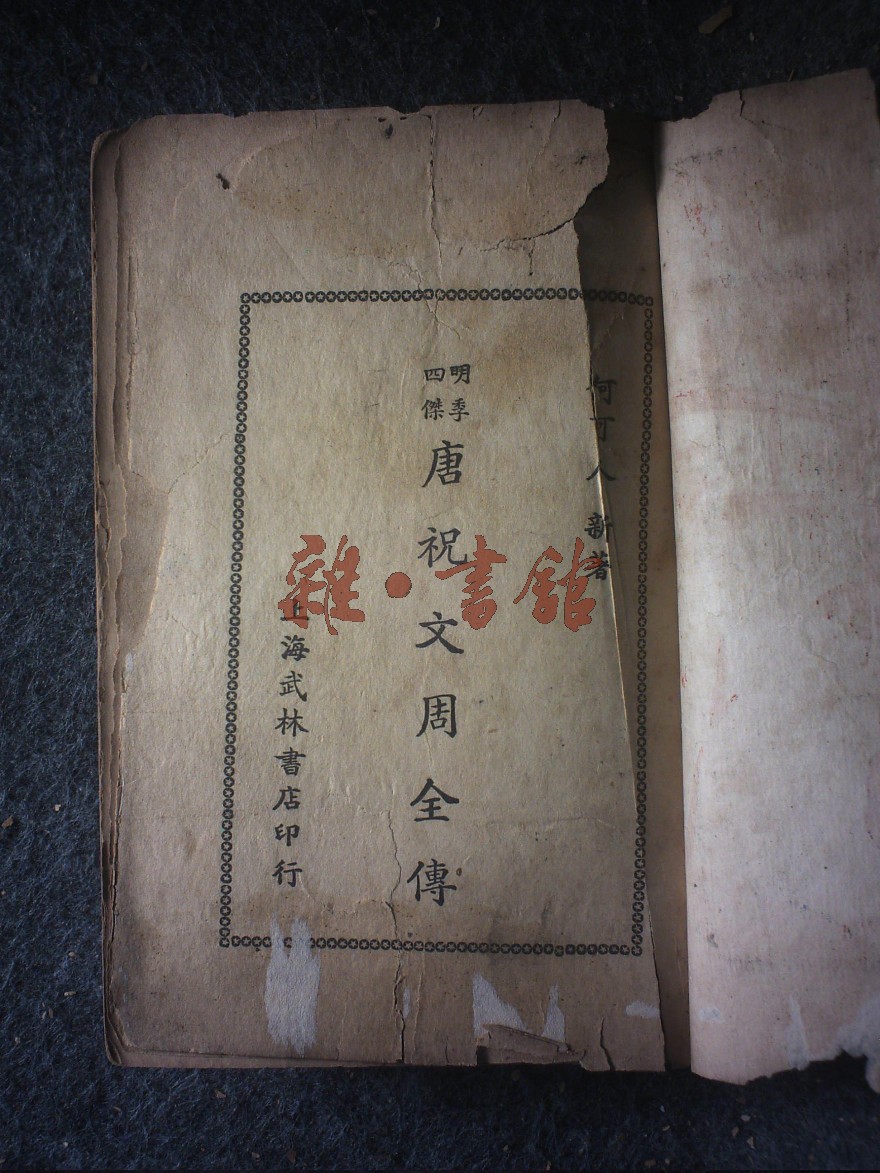 何可人新著
明季
四傑
唐祝文周全傳
上海武林書店印行
雜·書館